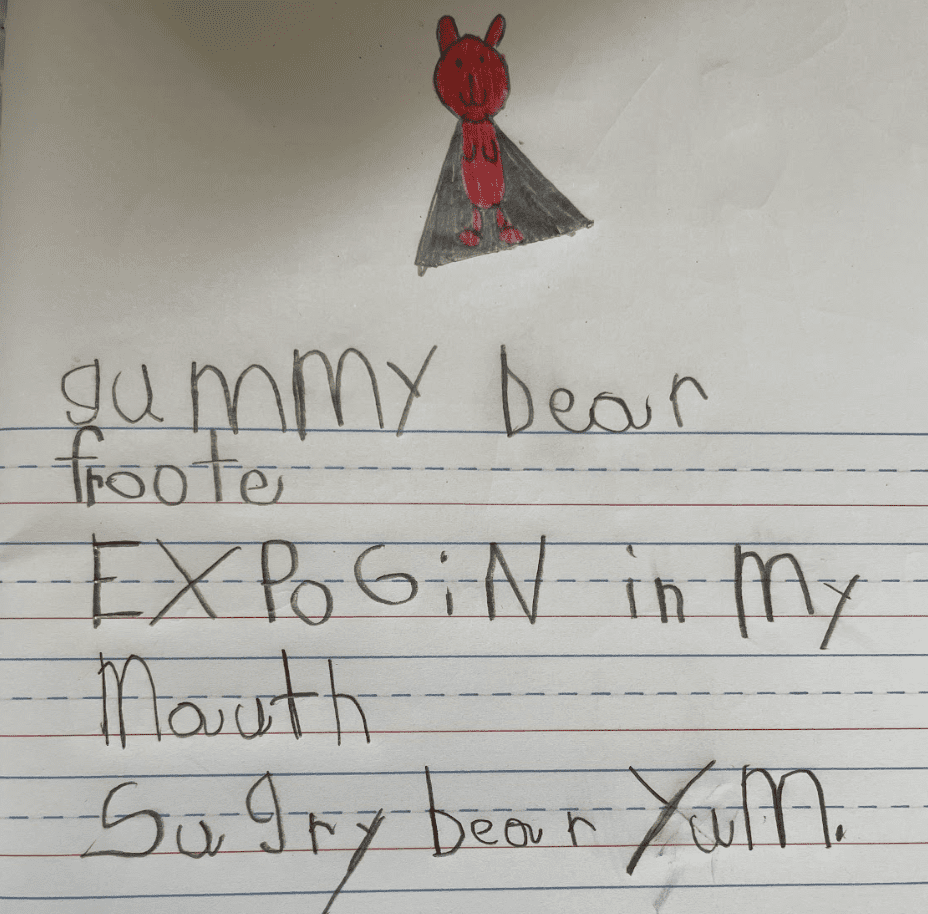 gummy bear
froote
EXPOGiN in My
Mouth
Sugry bear YuM.